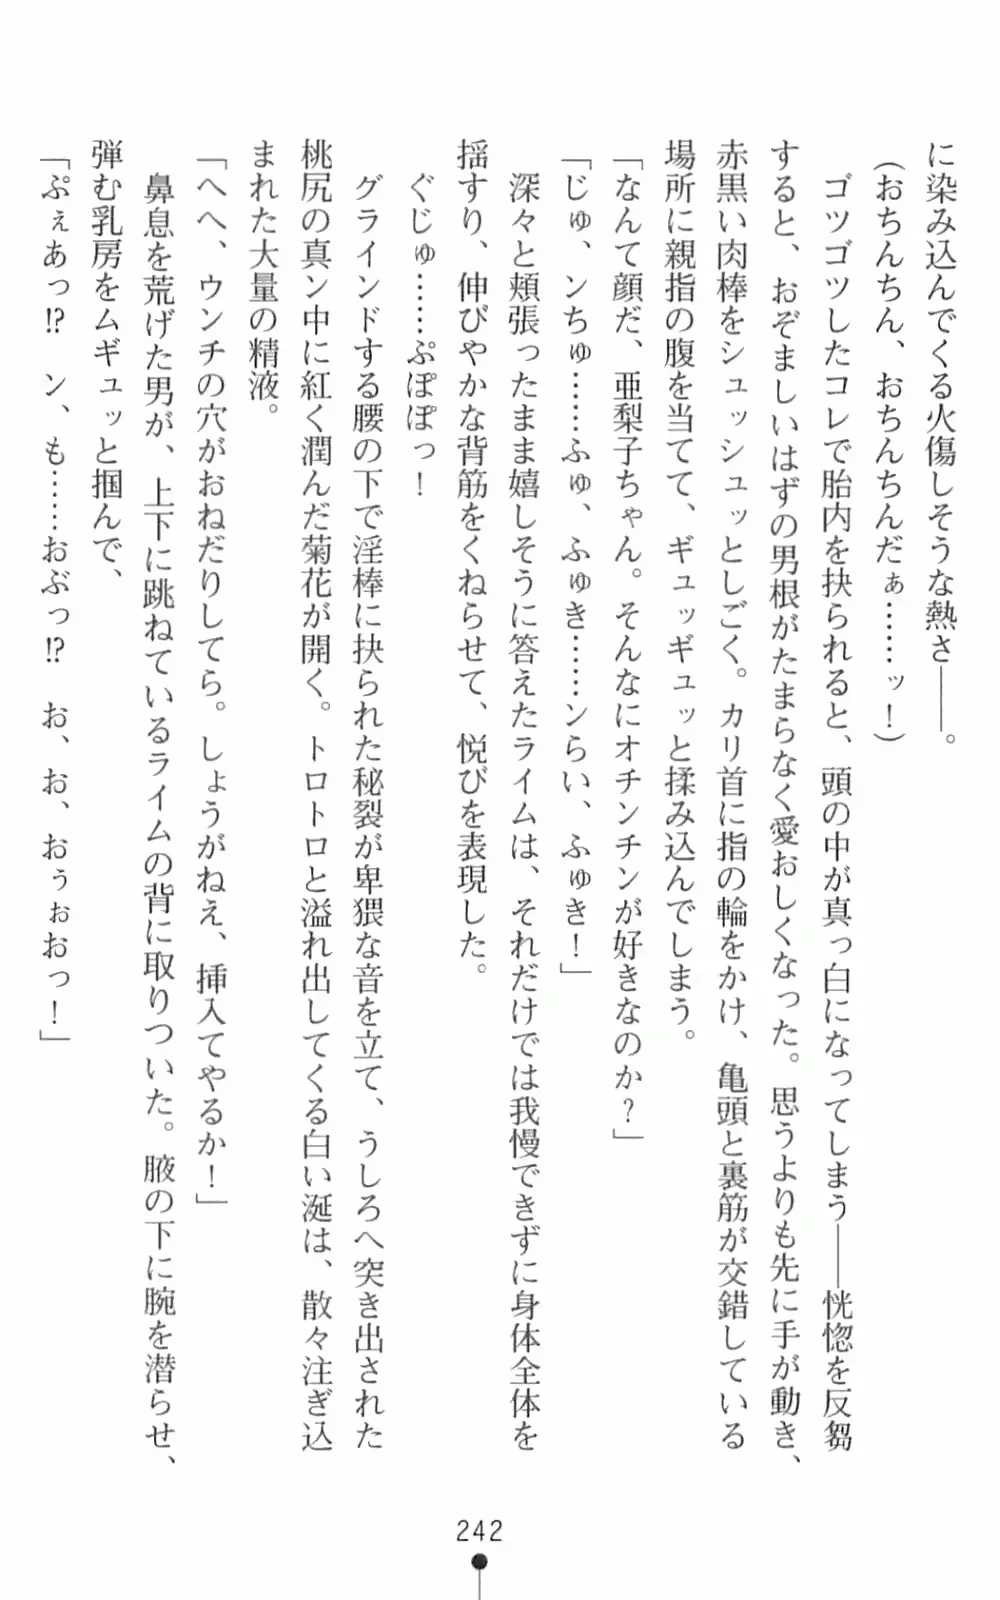 に染み込んでくる火傷しそうな熱さ――。
（おちんちん、おちんちんだぁ……ッ！）
　ゴツゴツしたコレで胎内を抉られると、頭の中が真っ白になってしまう――恍惚を反芻
すると、おぞましいはずの男根がたまらなく愛おしくなった。思うよりも先に手が動き、
赤黒い肉棒をシュッシュッとしごく。カリ首に指の輪をかけ、亀頭と裏筋が交錯している
場所に親指の腹を当てて、ギュッギュッと揉み込んでしまう。
「なんて顔だ、亜梨子ちゃん。そんなにオチンチンが好きなのか？」
「じゅ、ンちゅ……ふゅ、ふゅき……ンらい、ふゅき！」
　深々と頬張ったまま嬉しそうに答えたライムは、それだけでは我慢できずに身体全体を
揺すり、伸びやかな背筋をくねらせて、悦びを表現した。
　ぐじゅ……ぷぽぽっ！
　グラインドする腰の下で淫棒に抉られた秘裂が卑猥な音を立て、うしろへ突き出された
桃尻の真ン中に紅く潤んだ菊花が開く。トロトロと溢れ出してくる白い涎は、散々注ぎ込
まれた大量の精液。
「へへ、ウンチの穴がおねだりしてら。しょうがねえ、挿入てやるか！」
　鼻息を荒げた男が、上下に跳ねているライムの背に取りついた。腋の下に腕を潜らせ、
弾む乳房をムギュッと掴んで、
「ぷぇあっ!?　ン、も……おぶっ!?　お、お、おぅぉおっ！」
242